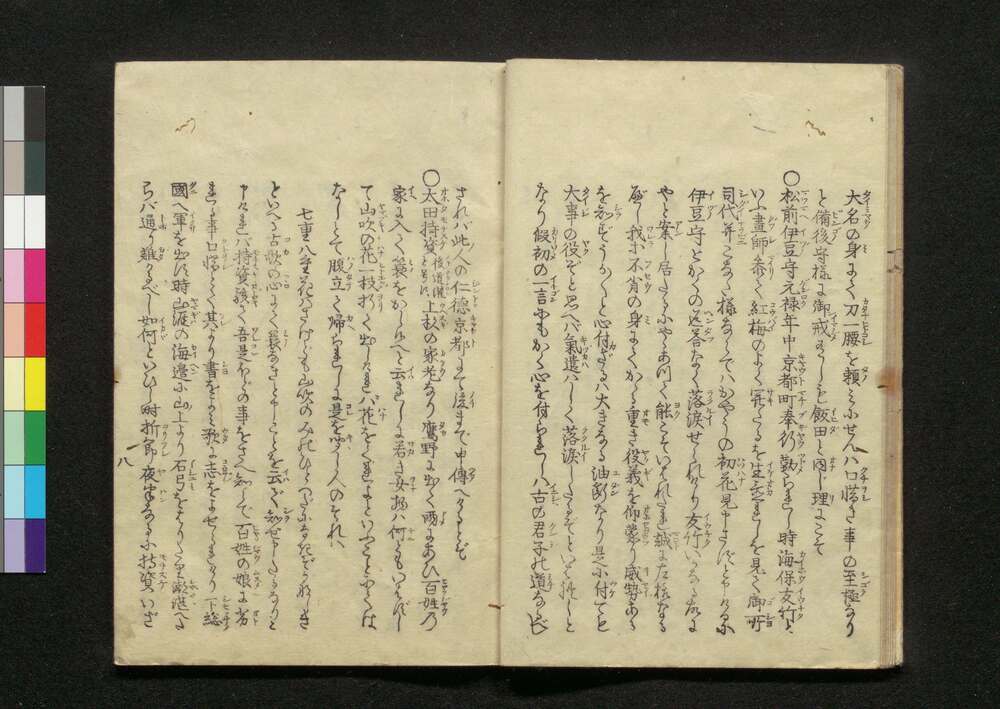 大名の身にて刀一腰を頼みにせんハ口惜き事の至極なり
と備後守様に御戒ありしも飯田と同じ理にこそ
○松前伊豆守元禄年中京都町奉行勤られし時海保友竹と
いふ畫師参りて紅梅のよく開たるを生置れしを見て御所
司代并こなた様ならてハかやうの初花見申さずと申けるに
伊豆守とかくの返答なく落涙せられけり友竹いかなる故に
やと案し居たるにやゝありて能こそいはれたれ誠に左様なる
べし我等不肖の身にてかゝる重き役義を仰蒙り威勢ある
を知ずうか〳〵と心付ざるハ大きなる油断なり是に付ても
大事の役ぞと思へバ氣遣ハしく落涙したるぞといはれしと
なり假初の一言にもかく心を付られしハ古の君子の道なるべし
されバ此人の仁徳京都にて後まで申傳へけるとぞ
○太田持資後道灌と号す上杉の家老なり鷹野に出て雨にあひ百姓の
家に入て蓑をかし給へと云れしに若き女物ハ何ともいはずし
て山吹の花一枝折て出しけれバ花をくれよといふことにてはな
なしとて腹立て帰られしに是を聞し人のそれハ
七重八重花ハさけども山吹のみのひとつだになきぞかなしき
といへる古歌の心にて蓑なきといふことを云が
けれバ持資驚て吾是ほどの事をさへ知らで百姓の娘に劣
れる事口惜とて其より書をよみ歌に志をよせられけり下総
國へ軍を出す時山涯の海邊に山上より石弓を
らバ通り難かるべし如何といひし時折節夜半なるに持資いざ
八